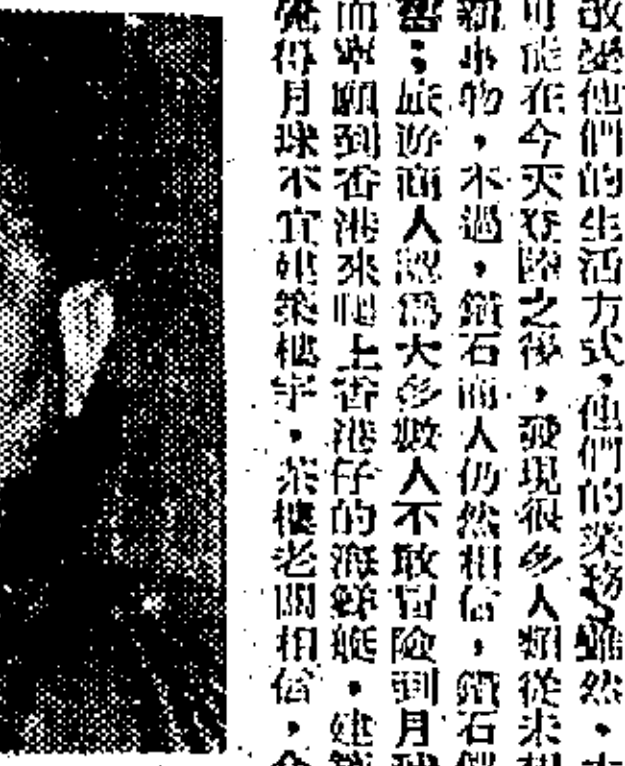 改變他們的生活方式，他們的業務，雖然，太
可能在今天登陸之後，發現很多人類從未想
新事物，不過，鑽石商人仍然相信，鑽石
；旅遊商人認爲大多數人不敢冒險到月球
而寧願到香港來爬上香港仔的海鮮艇，建
覺得月球不宜建築樓宇，茶樓老闆相信，